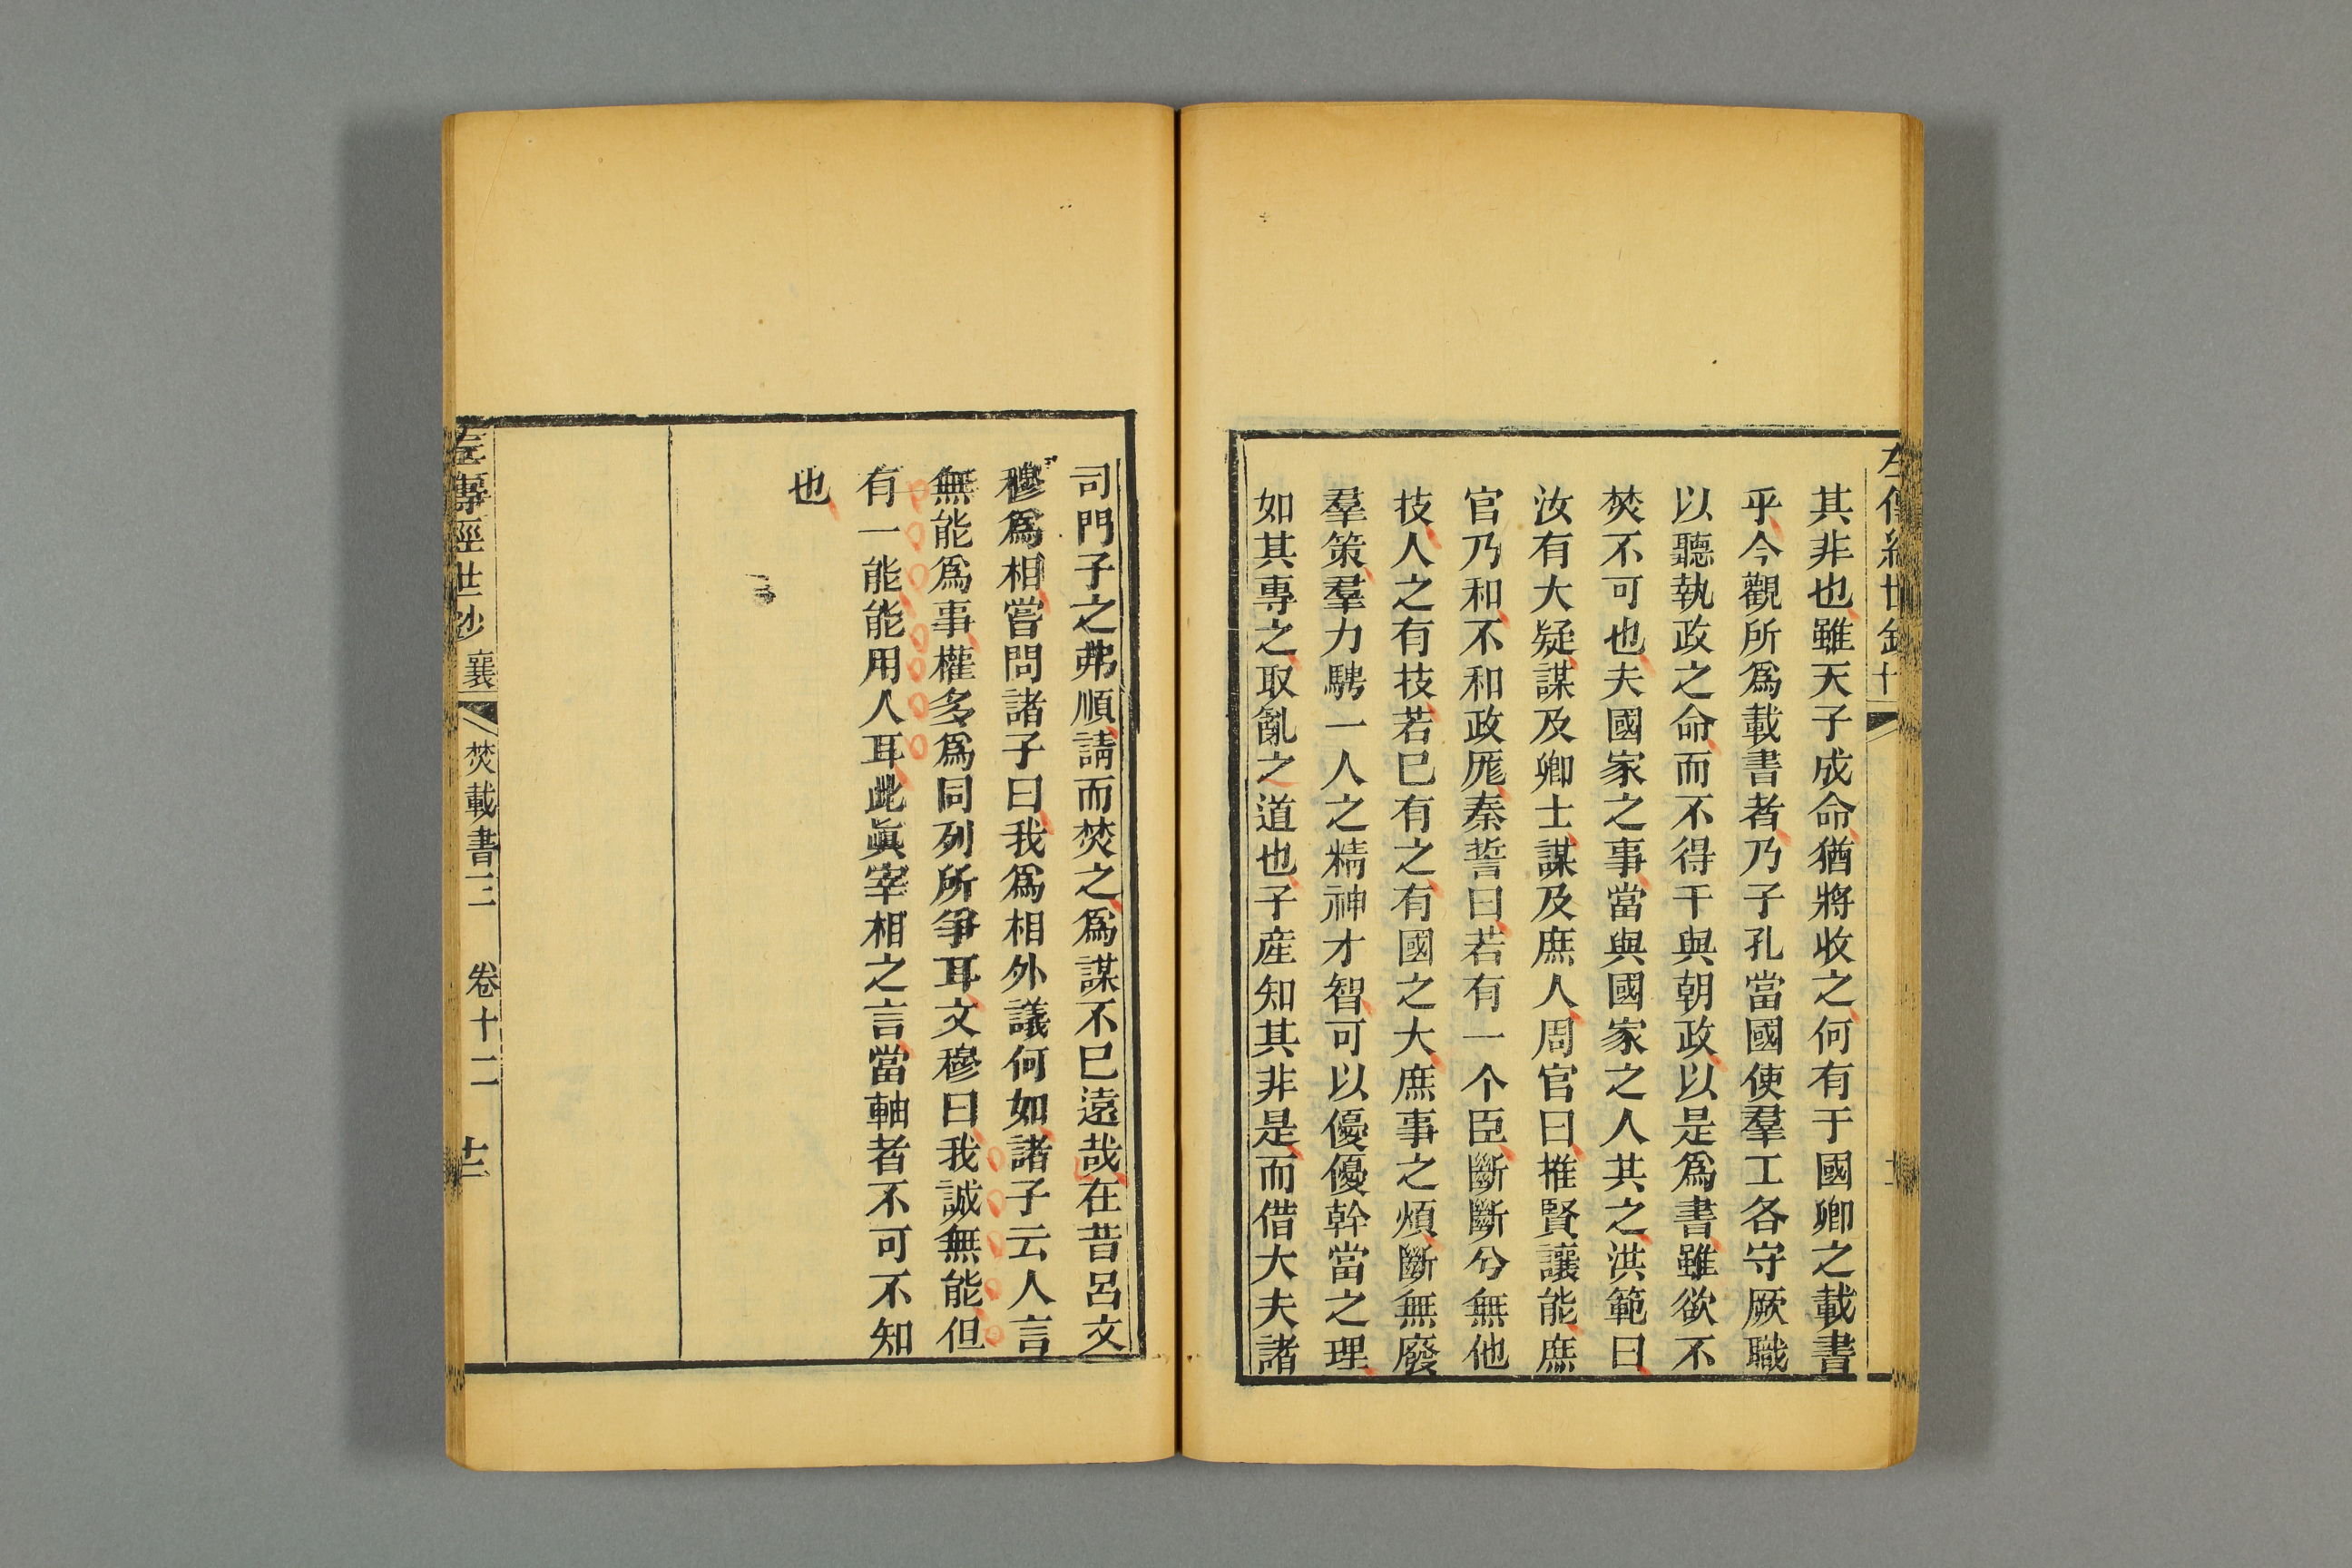 其非也雖天子成命猶將收之何有于國卿之載書
乎今觀所爲載書者乃子孔當國使羣工各守厥職
以聽執政之命而不得干與朝政以是爲書雖欲不
焚不可也夫國家之事當與國家之人其之洪範曰
汝有大疑謀及卿士謀及庶人周官曰推賢讓能庶
官乃和不和政厖秦誓曰若有一个臣斷斷兮無他
技人之有技若已有之有國之大庶事之煩斷無廢
羣策羣力騁一人之精神才智可以優優幹當之理
如其專之取亂之道也子産知其非是而借大夫諸
司門子之弗順請而焚之爲謀不已遠哉在昔呂文
穆爲相嘗問諸子曰我爲相外議何如諸子云人言
無能爲事權多爲同列所爭耳文穆曰我誠無能但
有一能能用人耳此眞宰相之言當軸者不可不知
也
左傳經世鈔 襄 焚載書三 卷十二 十三